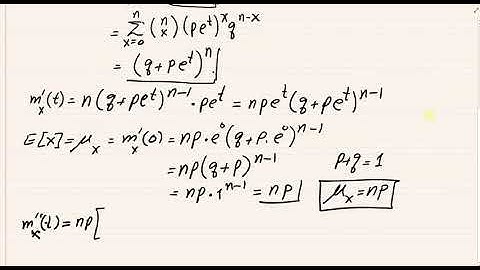 = Σ_{x=0}^{n} (n x) (pe^t)^x q^{n-x}
= (q + pe^t)^n.
m'_x(t) = n(q+pe^t)^{n-1} · pe^t = npe^t(q+pe^t)^{n-1}
E[X] = μ_x = m'_x(0) = np·e^0(q+p·e^0)^{n-1}
= np(q+p)^{n-1} p+q=1
= np·1^{n-1} = np μ_x = np
m''_x(t) = np[